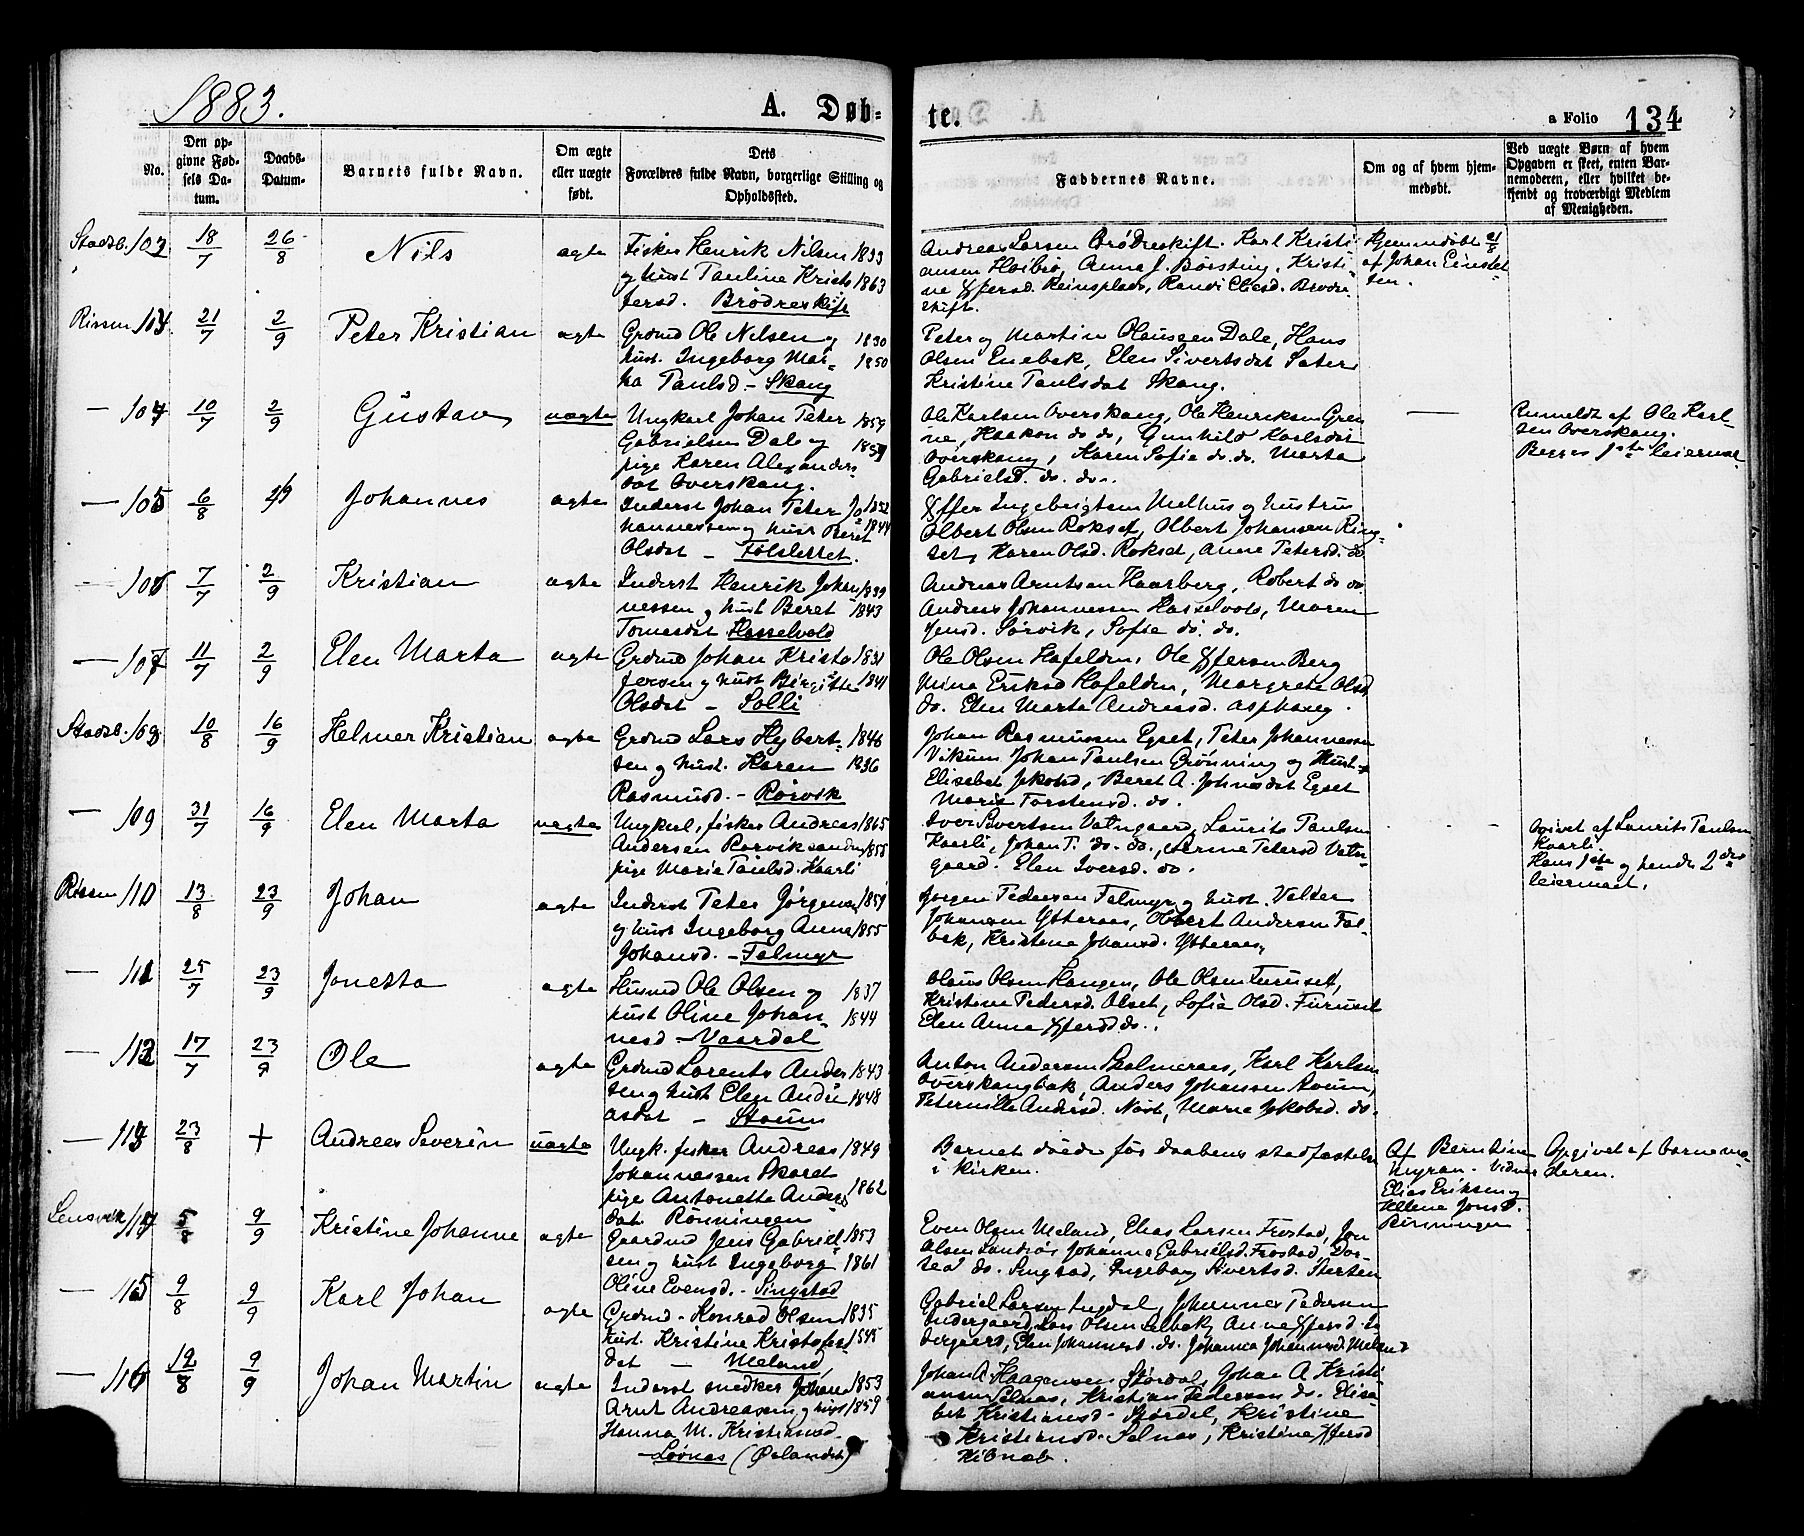 1883.
A. Døb=
te.
a Folio 134
No.
Den op-
givne Fød-
sels Da-
tum.
Daabs-
Datum.
Barnets fulde Navn.
Om ægte
eller uægte
født.
Dets
Forældres fulde Navn, borgerlige Stilling og
Opholdssted.
Faddernes Navne.
Om og af hvem hjem-
medøbt.
Ved uægte Børn af hvem
Opgaven er skeet, enten Bar-
nemoderen, eller hvilket be-
kjendt og troværdigt Medlem
af Menigheden.
Stadsb. 102 18/7 26/8 Nils ægte
Fisker Henrik Nilsen 1833
og hust Pauline Kristo 1863
fersd. Brödreskift
Andreas Larsen Brødreskift. Karl Kristi
ansen Hoibrö, Anna J. Börsting, Kristi-
ne Xffersd. Reinsplads, Randi
skift.
Hjemmedöbt 21/8
af Johan
Rissen 103 21/7 2/9 Peter Kristian ægte
Grdmd Ole Nilsen og 1830
hust. Ingeborg Mar- 1850
ha Paulsd - Skang
Peter og Martin Claussen Dale, Hans
Olsen Enebek, Elen Sivertsdat Sæter
Kristine Paulsdat Skang.
— 104 10/7 2/9 Gustav uægte
Ungkarl Johan Peter 1859
Gabrielsen Dale og
pige Karen Alexanders
dat Overskang.
Ole Karlsen Overskang, Ole Henriksen Gren
ne, Haakon do do, Gunhild Karlsdat
Overskang, Karen Sofie do. do. Marta
Gabrielsd. do. do.
Anmeldt af Ole Karl-
sen Overskang.
Begges 1ste leiermal
— 105 6/8 2/9 Johannes ægte
Inderst Johan Peter Jo
hannessen og hust Beret 1844
Olsdat - Fölslettet.
Xffer Ingebrigtsen Melhus og hustru
Olbert Olsen Rokset, Olbert Johansen Ring-
set, Karen Olsd. Rokset, Anne Petersd. do
— 106 7/7 2/9 Kristian ægte
Inderst Henrik Johan 1839
nessen og hust Beret 1843
Tomesdat Hasselvold
Andreas Arntsen Haarberg, Robert do do.
Andreas Johannessen Hasselvold, Maren
Jensd. Sörvik, Sofie do. do.
— 107 11/7 2/9 Elen Marta ægte
Grdmd Johan Kristo 1831
fersen og hust Birgitte 1841
Olsdat - Solli
Ole Olsen Hafelden, Ole Xffersen Berg
Nina Eriksd Hafelden, Margrete Olsd
do. Elen Marta Andreasd. Asphaug.
Stadsb. 108 10/8 16/9 Helmer Kristian ægte
Grdmd Lars Hybert- 1846
sen og hust. Karen 1836
Rasmusd. - Rörvik
Johan Rasmussen Egset, Peter Johannessen
Vikum Johan Paulsen Grönning og Hust-
Elisabet Jakobsd, Beret A. Johnsdat Egset
Marie Torstensd. do.
— 109 31/7 16/9 Elen Marta uægte
Ungkarl, fisker Andreas 1865
Andersen Rørviksanden 1856
pige Marie Paulsd. Kaarli
Iver Sivertsen Vatngaard, Laurits Paulsen
Kaarli, Johan P. do. do., Anne Petersd Vatn-
gaard. Elen Iversd. do.
Opgivet af Laurits Paulsen
Kaarli.
Hans 1ste og hendes 2det
leiermaal.
Rissen 110 13/8 23/9 Johan ægte
Inderst Peter Jørgensen 1859
og hust Ingeborg Anna 1855
Johansd. - Falmyr
Jørgen Pedersen Falmyr og hust. Valter
Johansen Ytteraas, Olbert Andersen Fal-
bek, Kristena Johansd. Ytteraas,
— 111 25/7 23/9 Jonetta ægte
Husmd Ole Olsen og 1837
hust Oline Johan- 1844
nesd - Vaardal
Olaus Olsen Hangen, Ole Olsen Furuset,
Kristine Pedersd. Olset, Sofie Olsd. Furuset
Elen Anne Xffersd do.
— 112 17/7 23/9 Ole ægte
Grdmd Lorents Ander 1843
sen og hust Elen Andre 1848
asdat - Stoum
Anton Andersen Skalmeraas, Karl Karlsen
Overskangbak, Anders Johansen Stoum,
Peternille Andersd. Nöst, Marie Jakobsd. do.
— 113 23/8 + Andreas Severin uægte
Ungk. fisker Andreas 1849
Johannessen Skaret
pige Antonette Anders 1862
dat. Rönningen
Barnet döde för daabens stadfæstelse
i kirken.
Af Berntine
Myran. Vidner
Elias Eriksen og
Hellena Jonsd.
Rönningen
Opgivet af barnemo-
deren.
Lensvik 114 5/8 9/9 Kristine Johanne ægte
Gaardmd Jens Gabriel- 1853
sen og hust Ingeborg 1861
Oline Evensd. - Singstad
Even Olsen Meland, Elias Larsen Frostad, Jon
Olsen Landrö, Johanna Gabrielsd. Frostad, Dor-
tea do. Singstad, Ingeborg Sivertsd. Sterten
— 115 9/8 9/9 Karl Johan ægte
Grdmd - Konrad Olsen 1835
hust. Kristine Kristofers 1845
dat — Meland
Gabriel Larsen Ingdal, Johannes Pedersen
Undergaard, Lars Olsen Selbek, Anne Xffersd. Un
dergaard, Elen Johannesd. do. Johanna Johannesd Meland
— 116 12/8 9/9 Johan Martin ægte
Inderst snedker Johan 1853
Arnt Andreassen og hust 1859
Hanna M. Kristiansd.
- Lövnæs (Ørlandet)
Johan A. Haagensen Stördal, Johan A Kristi
ansen Selnæs, Kristian Pedersen do. Elisa-
bet Kristiansd - Stördal, Kristine
Kristiansd. Selnæs, Kristine Xffersd